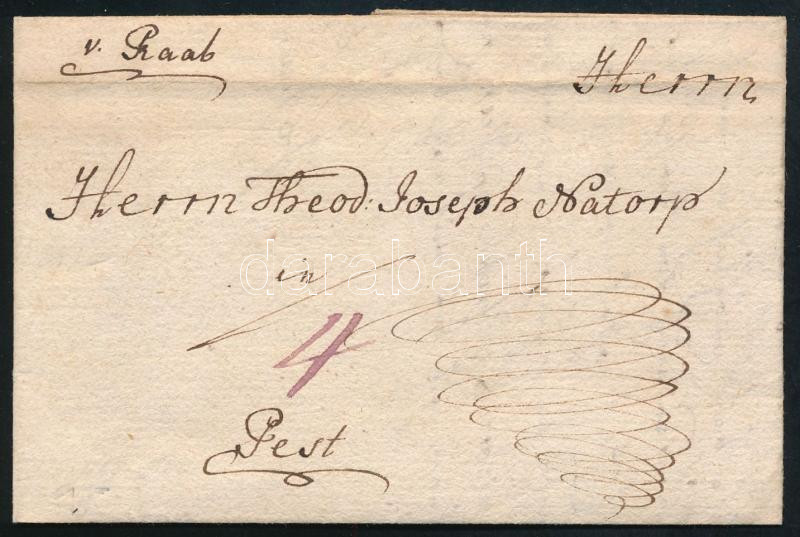 v. Raab
Herrn
Herrn Theod: Joseph Natorp
in
darabanth
4
Pest